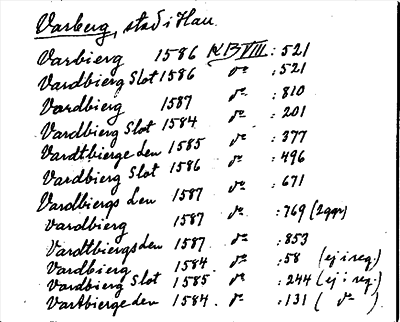 Varberg, stad i Hall.
Varbierg 1586 KB VIII : 521
Vardbierg Slot 1586 do : 521
Vardbierg 1587 do : 810
Vardbierg Slot 1584 do : 201
Vardtbierge Len 1585 do : 377
Vardbierg Slot 1586 do : 496
Vardbiergs Len 1587 do : 671
Vardbierg 1587 do : 769 (2ggr)
Vardtbiergs len 1587 do : 853
Vardbierg 1584 do : 58 (ej i reg.)
Vardbierg Slot 1585 do : 244 (ej i reg.)
Vartbierge len 1584 do : 131 ( do )